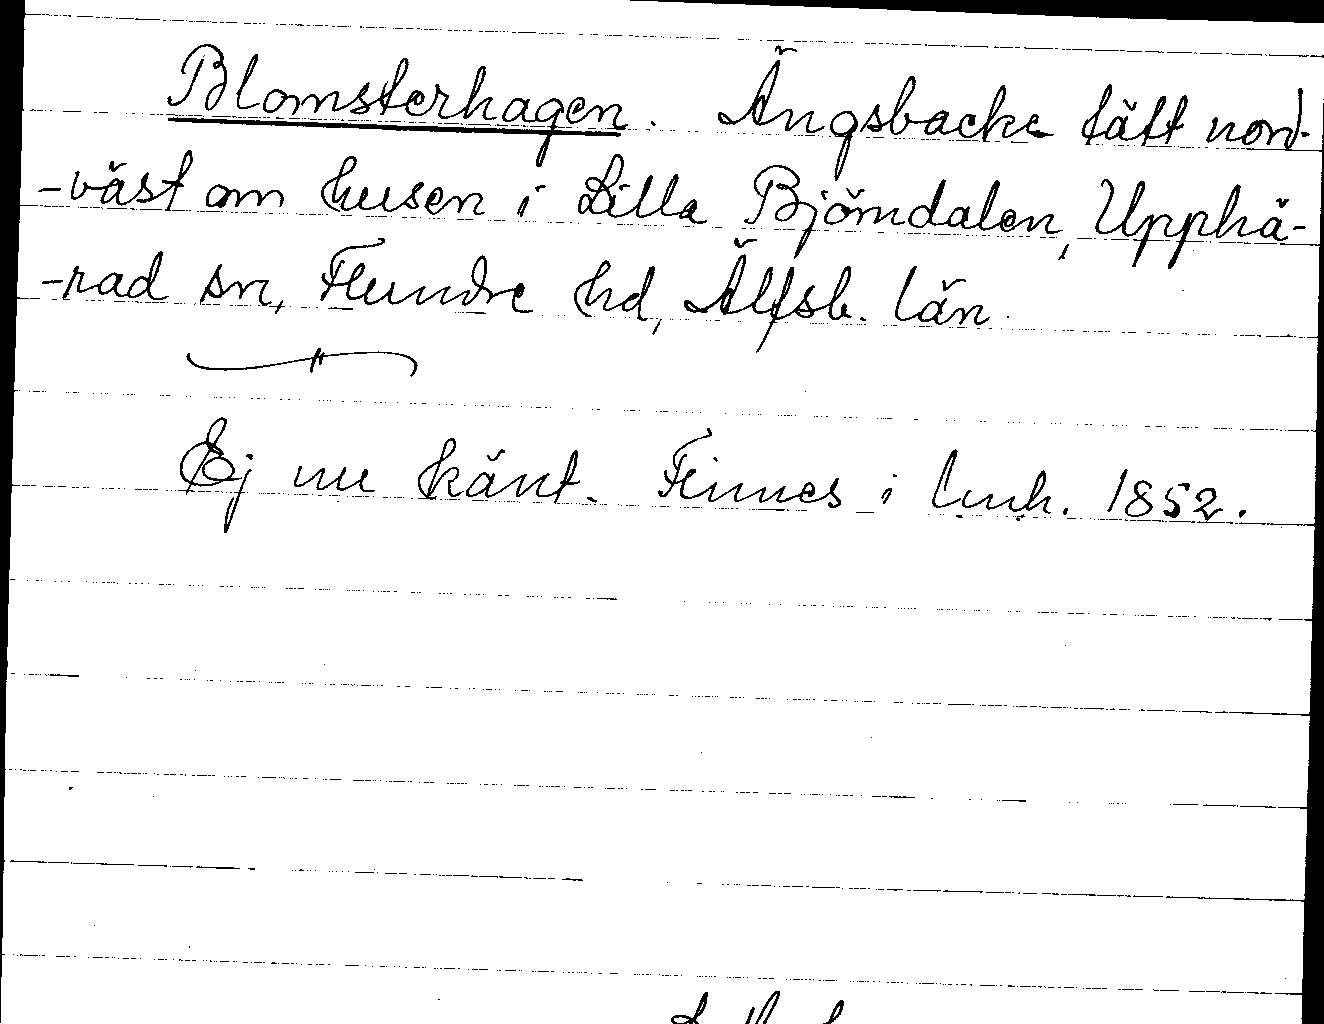 Blomsterhagen. Ängsbacke tätt nord-
-väst om husen i Lilla Björndalen, Upphä-
-rad sn, Flundre hd, Älfsb. län.
Ej nu känt. Finnes i lmh. 1852.